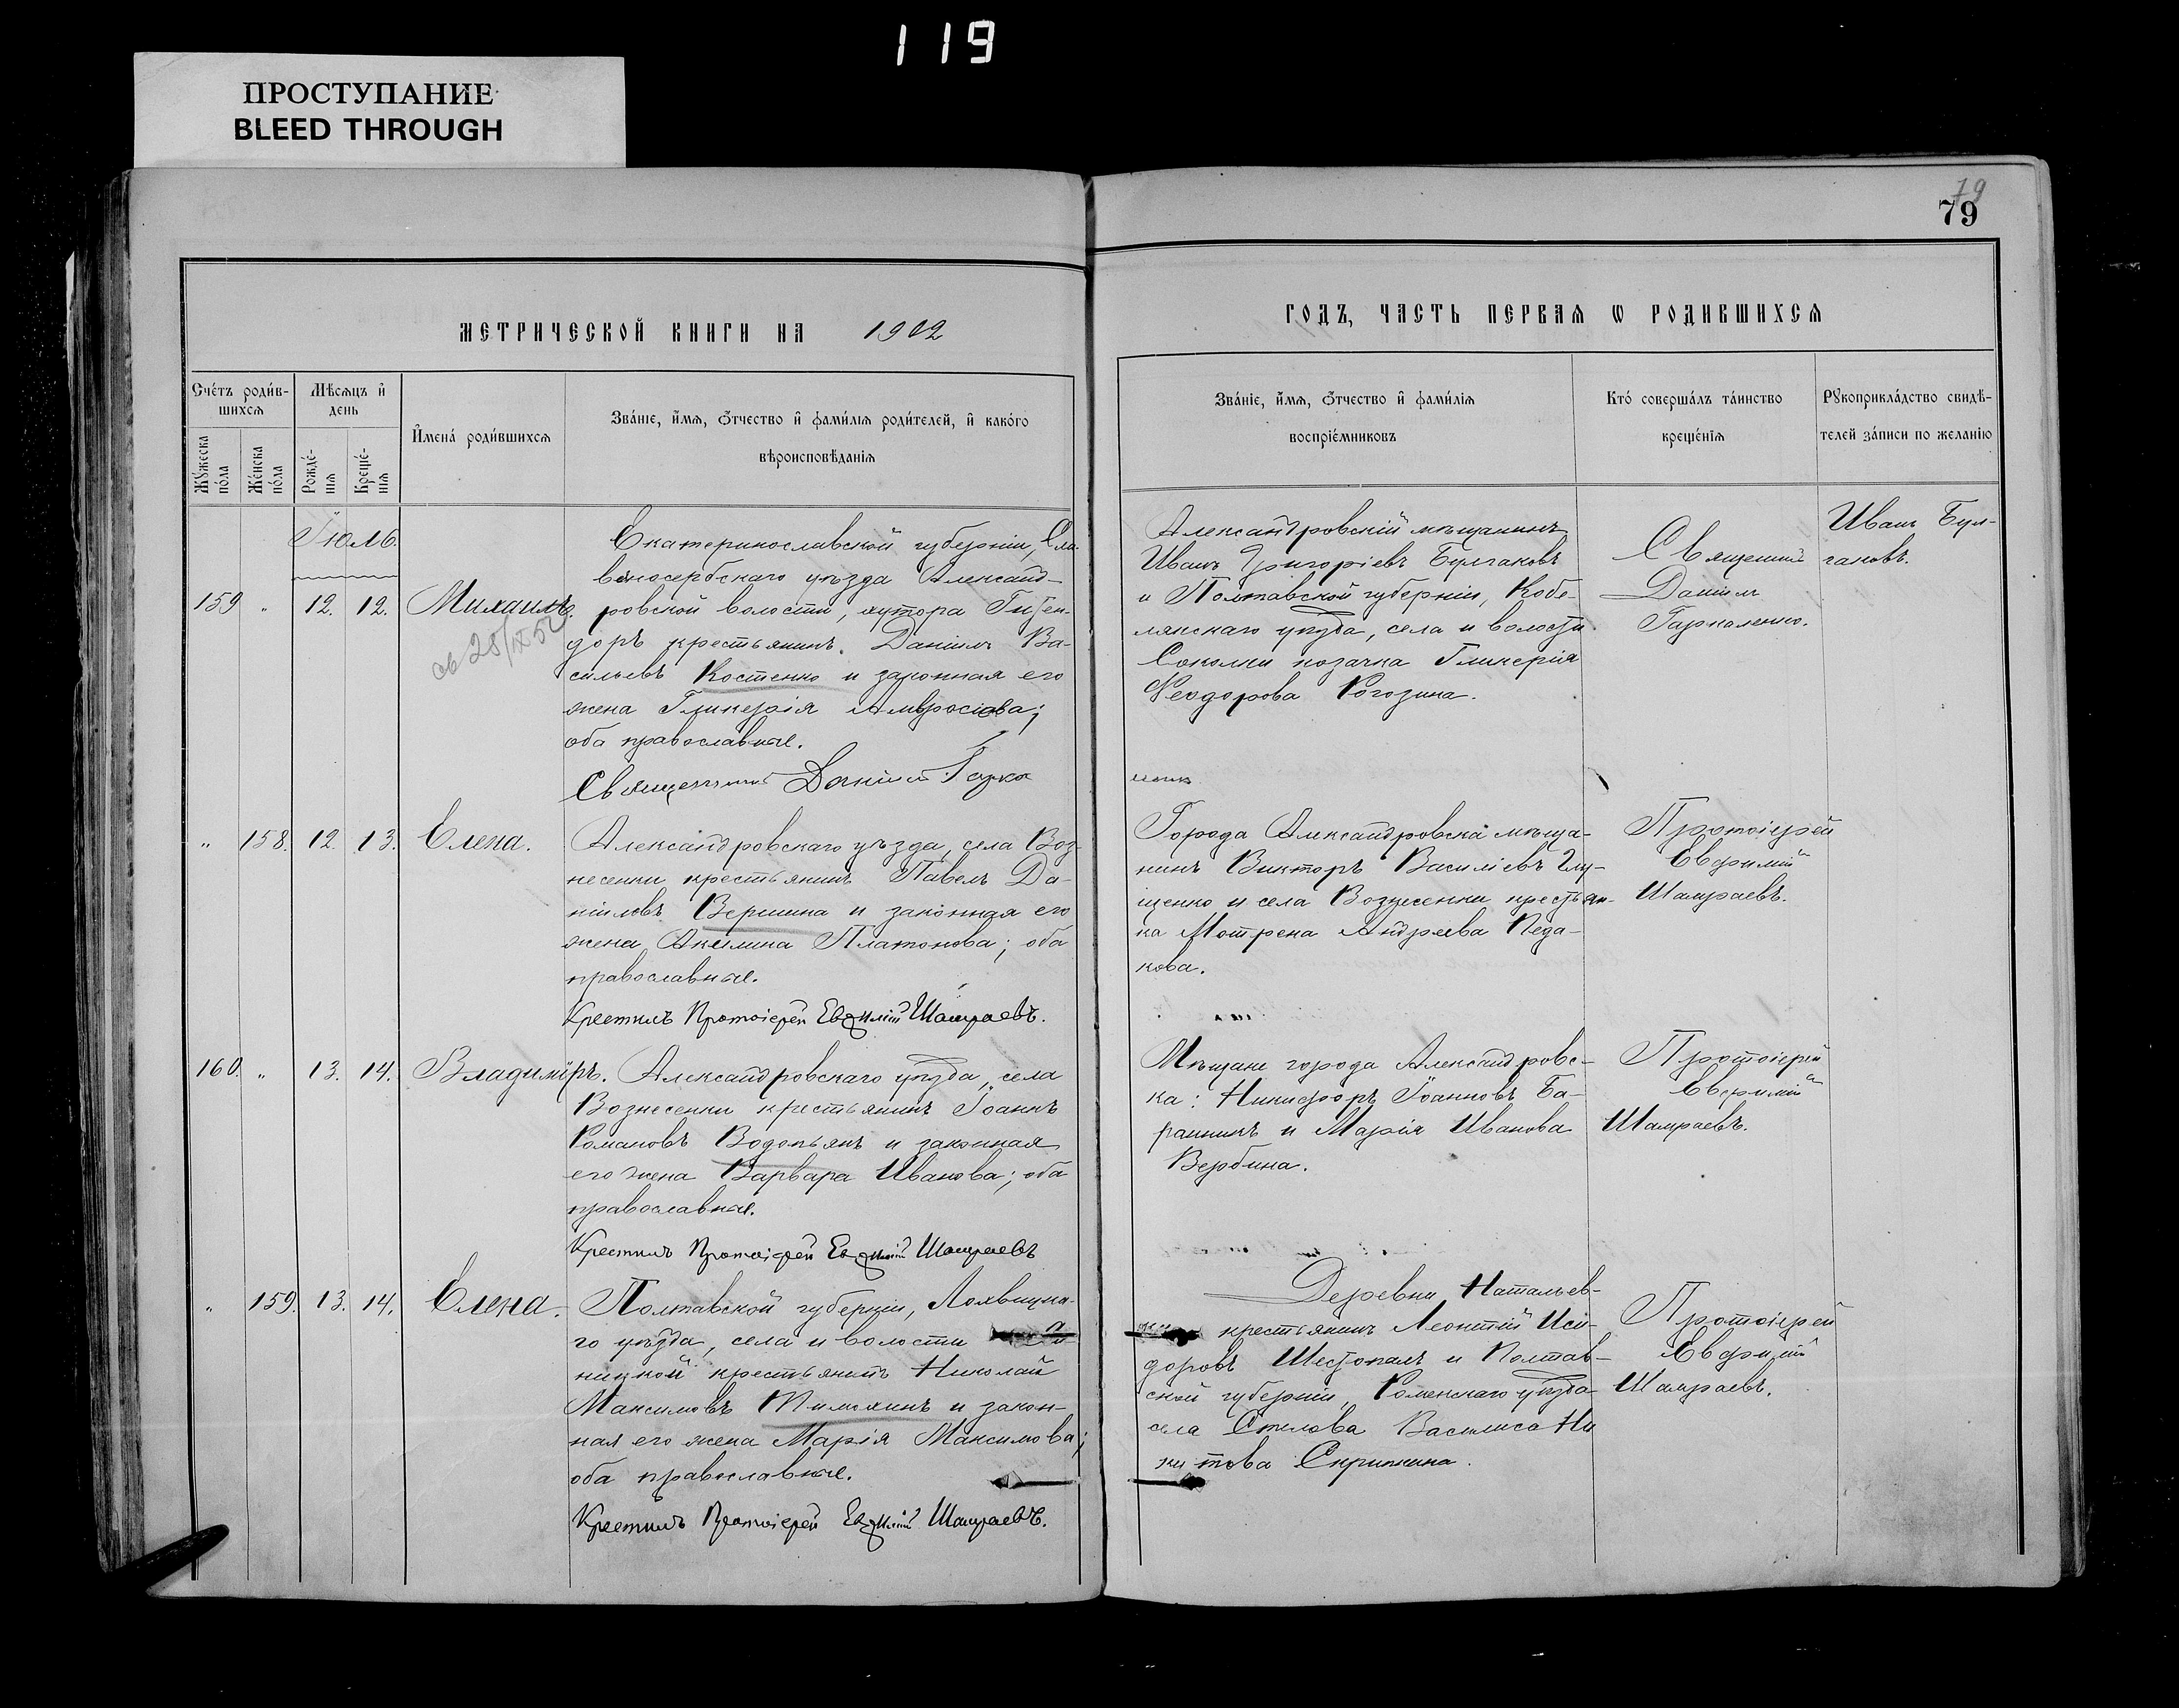 119
ПРОСТУПАНИЕ
BLEED THROUGH
79
79
МЕТРИЧЕСКОЙ КНИГИ НА 1902
ГОДЪ, ЧАСТЬ ПЕРВАѦ Ѡ РОДИВШИХСѦ
Счéтъ роди́в-
шихсѧ
Мѣсѧцъ и҆
день
Мꙋ́жеска
по́ла
Же́нска
по́ла
Рожде́-
нїѧ
Креще́-
нїѧ
И҆мена́ роди́вшихсѧ
Зва́нїе, и҆́мѧ, ѻ҆́тчество и҆ фами́лїѧ роди́телей, и҆ како́го
вѣроисповѣ́данїѧ
Зва́нїе, и҆́мѧ, ѻ҆́тчество и҆ фами́лїѧ
воспрїе́мниковъ
Кто́ соверша́лъ та́инство
креще́нїѧ
Рꙋкоприкла́дство свидѣ́-
телей за́писи по желанїю
Іюль.
159 " 12. 12. Михаилъ.
Екатеринославской губерніи, Сла-
веносербскаго уѣзда Александ-
ровской волости, хутора
доръ крестьянинъ Даніилъ Ва-
сильевъ Костенко и законная его
жена Гликерія Амвросіева;
оба православные.
Священникъ Даніилъ Гарка
Александровскій мѣщанинъ
Иванъ Григоріевъ Булгаковъ
и Полтавской губерніи, Кобе-
лякскаго уѣзда, села и волости
Соколки козачка Гликерія
Феодорова Рогозина.
Священникъ
Даніилъ
Гаркаленко.
Иванъ Бул-
гаковъ.
" 158. 12. 13. Елена.
Александровскаго уѣзда, села Воз-
несенки крестьянинъ Павелъ Да-
ніиловъ Вершина и законная его
жена Акилина Платонова; оба
православные.
Крестилъ Протоіерей Евфимій Шамраевъ.
Города Александровска мѣща-
нинъ Викторъ Василіевъ Глу-
щенко и села Вознесенки крестьян-
ка Мотрена Андреева Педа-
кова.
Протоіерей
Евфимій
Шамраевъ.
160. " 13. 14. Владиміръ.
Александровскаго уѣзда, села
Вознесенки крестьянинъ Іоаннъ
Романовъ Водопьянъ и законная
его жена Варвара Иванова; оба
православные.
Крестилъ Протоіерей Евфимій Шамраевъ
Мѣщане города Александровс-
ка: Никифоръ Іоанновъ Ба-
ранникъ и Марія Иванова
Вербина.
Протоіерей
Евфимій
Шамраевъ.
" 159. 13. 14. Елена.
Полтавской губерніи, Лохвицка-
го уѣзда, села и волости
ницкой крестьянинъ Николай
Максимовъ и закон-
ная его жена Марія Максимова;
оба православные.
Крестилъ Протоіерей Евфимій Шамраевъ.
Деревни Натальев-
крестьянинъ Леонтій Иси-
доровъ Шестопалъ и Полтав-
ской губерніи, Роменскаго уѣзда
села Василиса Ни
китова Скрипкина.
Протоіерей
Евфимій
Шамраевъ.